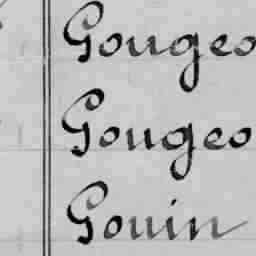 Gougeo
Gougeo
Gouin